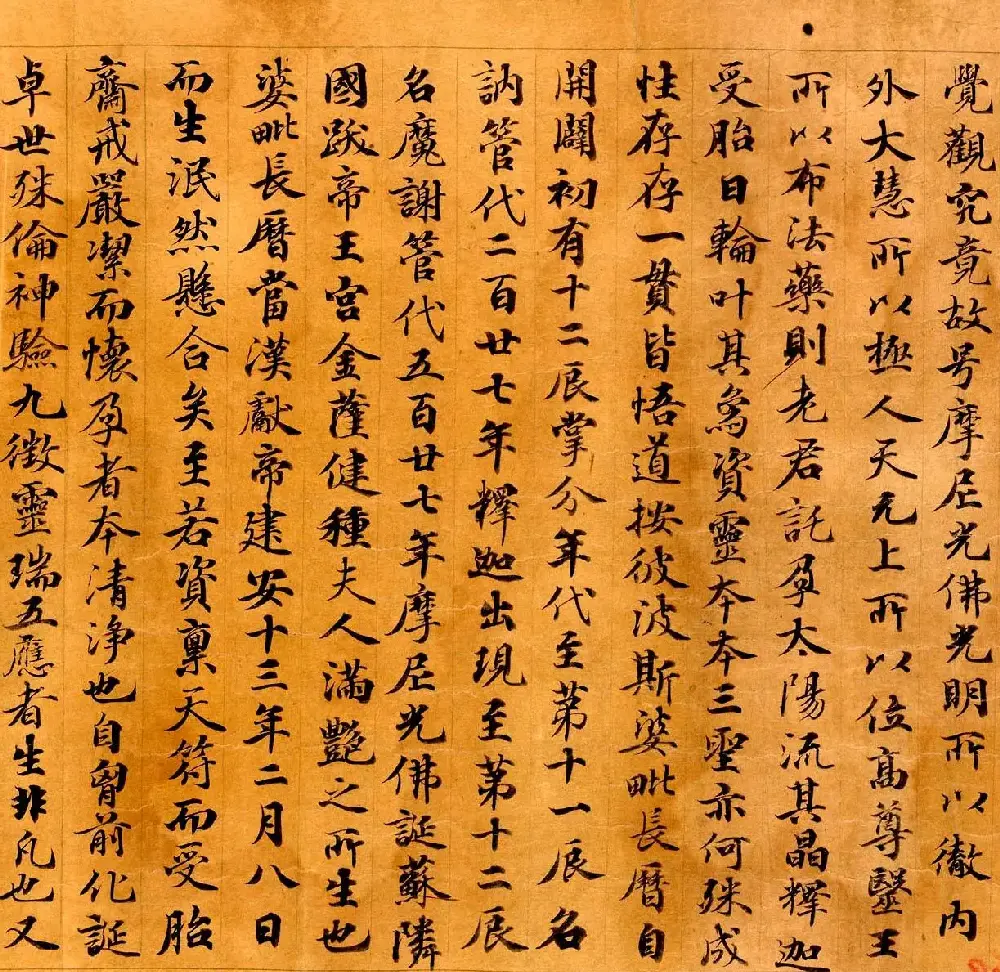 覺觀究竟故号摩尼光佛光明所以徹內
外大慧所以極人天无上所以位高尊毉王
所以布法藥則老君託孕太陽流其晶釋迦
受胎日輪叶其為資靈夲夲三聖亦何殊成
性存存一貫皆悟道按彼波斯婆毗長曆自
開闢初有十二辰掌分年代至第十一辰名
訥管代二百廿七年釋迦出現至第十二辰
名魔謝管代五百廿七年摩尼光佛誕蘇隣
國跋帝王宮金薩健種夫人滿艷之所生也
婆毗長曆當漢獻帝建安十三年二月八日
而生泯然懸合矣至若資稟天符而受胎
齋戒嚴潔而懷孕者夲清浄也自胷前化誕
卓世殊倫神驗九徵靈瑞五應者生非凡也又